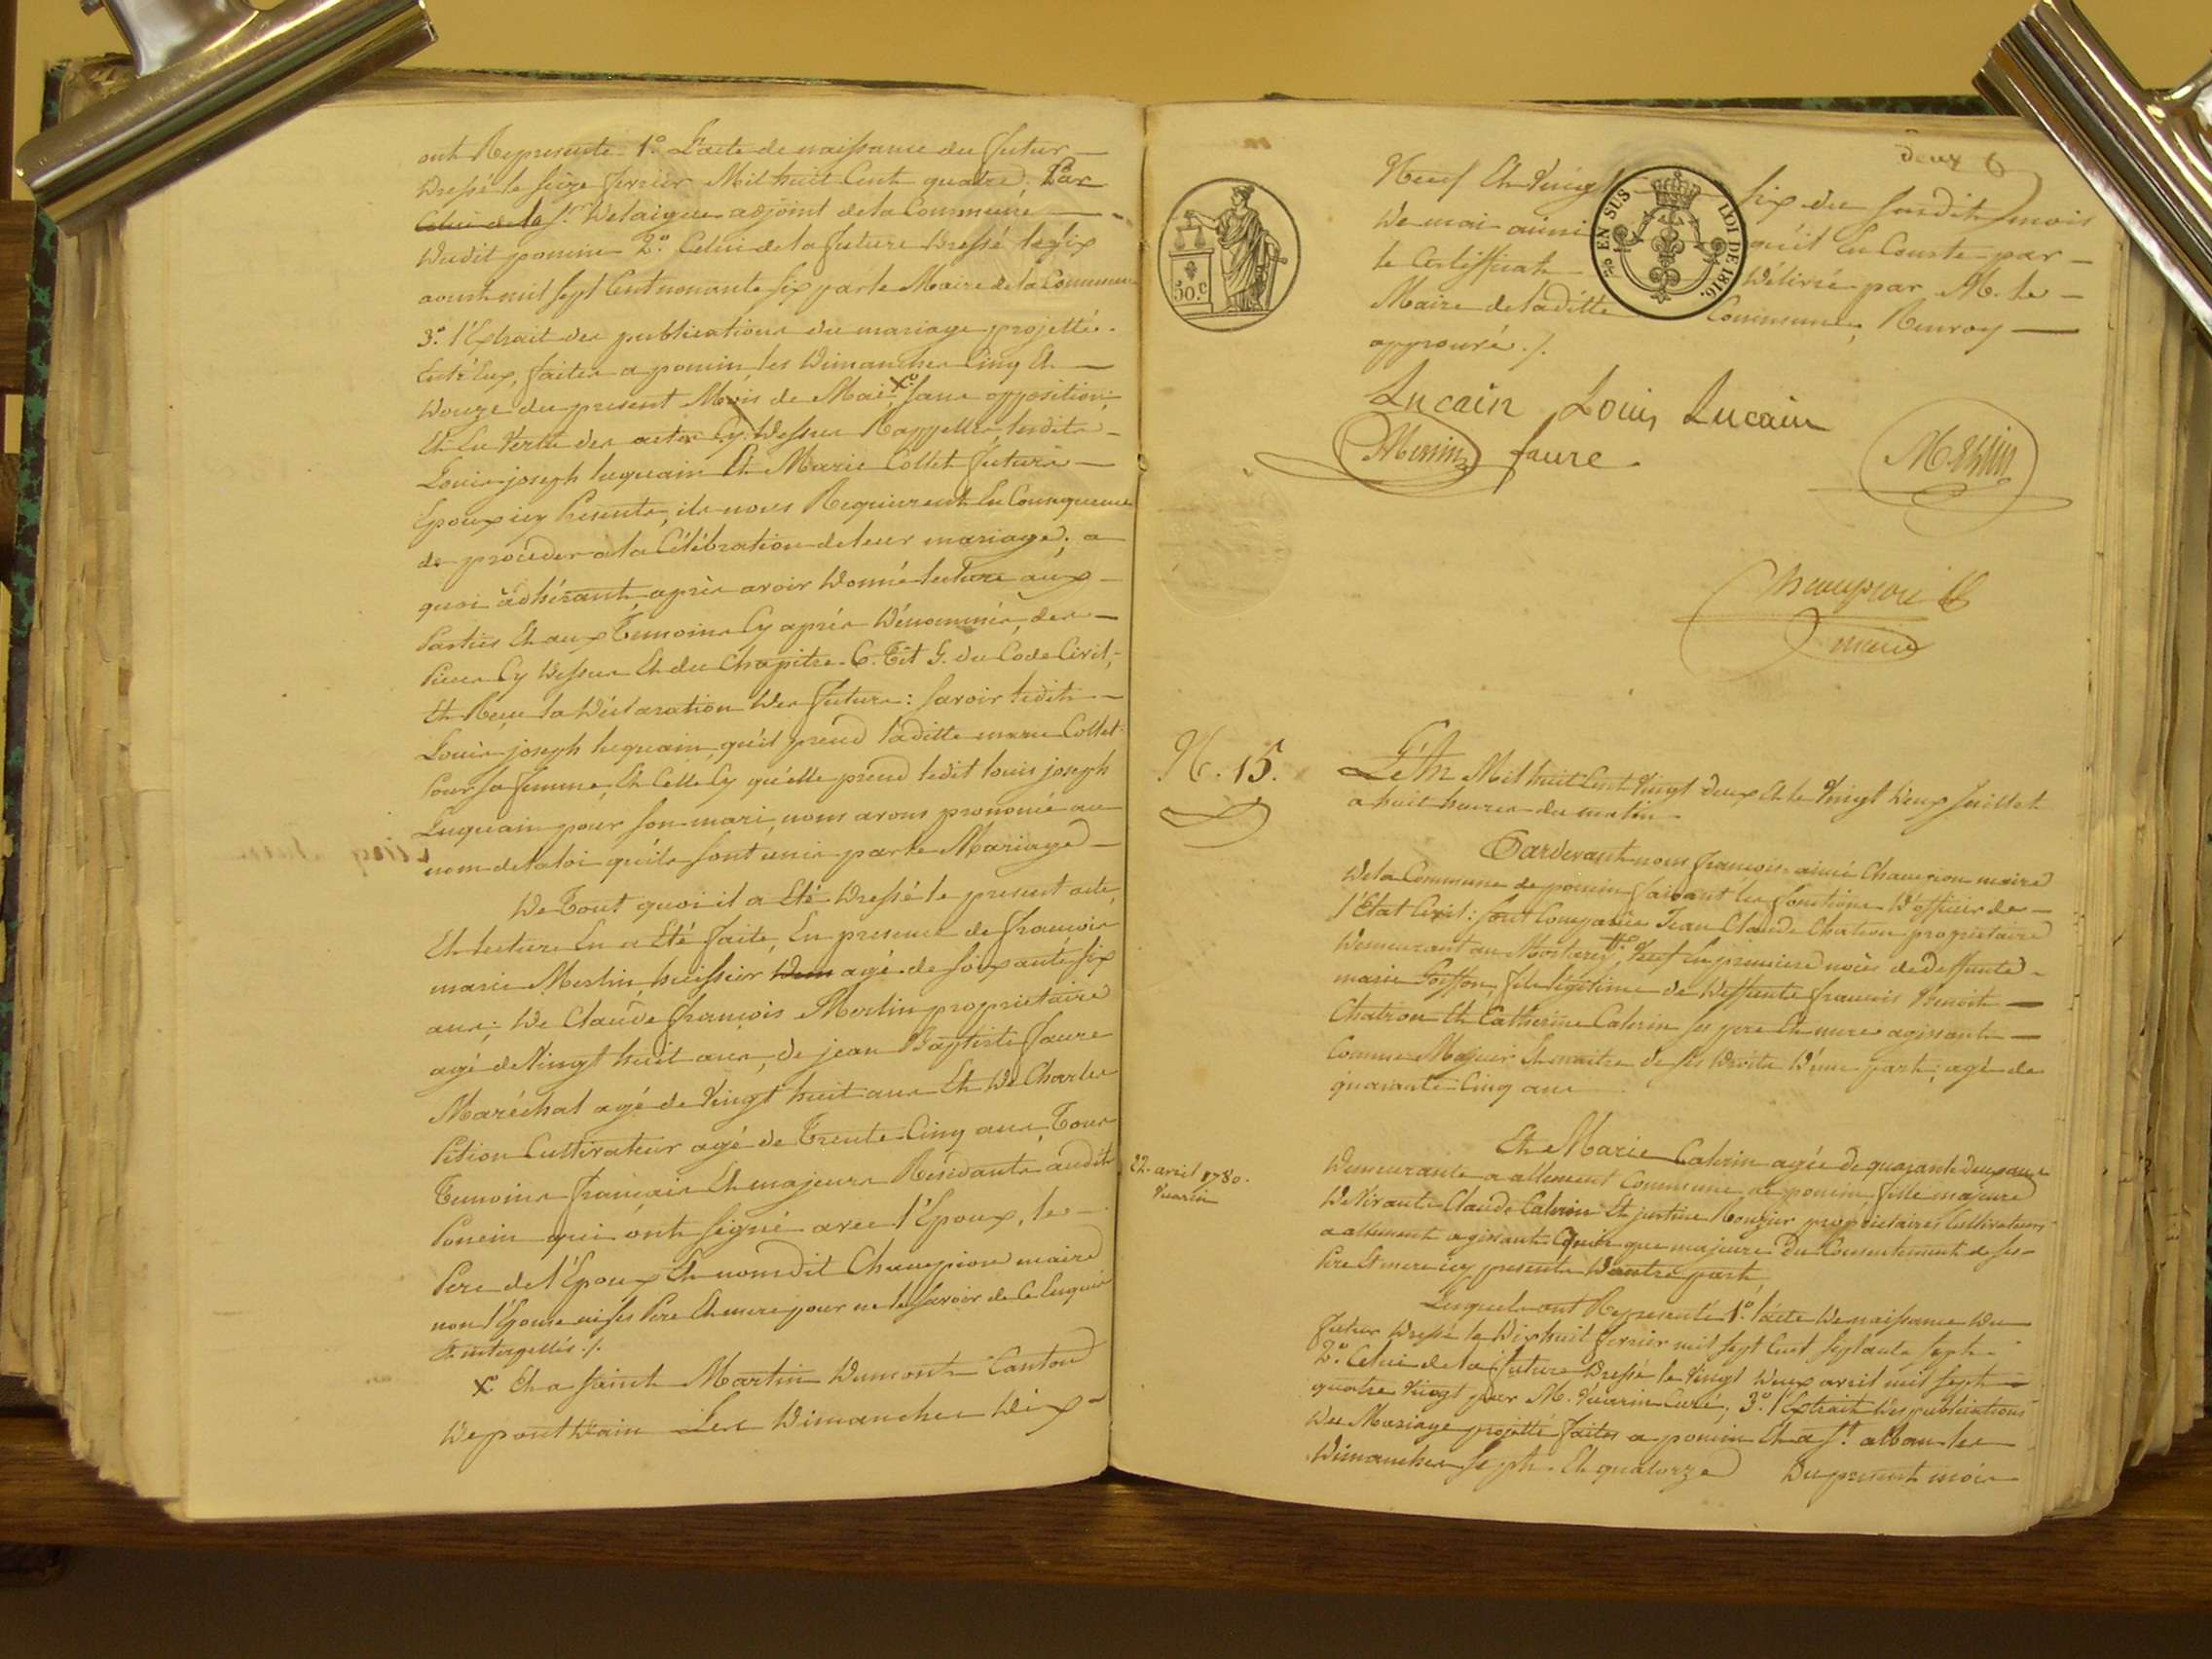 ont Representé 1.° L'acte de naissance du futur
Dressé le seize fevrier Mil huit Cent quatre, Par
Celui de la Sr. Delaigue adjoint de la Commune
Dudit poncin 2.° Celui de la future Dressé le six
aoust mil sept Cent nonante six par le Maire de la Commune
3.° l'Extrait des publications du mariage projetté
Entr'Eux, faites a poncin les Dimanches Cinq Et
Douze du present Mois de Mai X.° sans opposition,
Et En Vertu des actes Cy Dessus Rappellés, lesdits
Louis joseph luquain Et Marie Collet futurs
Epoux icy Presents, ils nous Requierent En Consequence
de procéder a la Célébration de leur mariage, a
quoi adhérant, après avoir Donné lecture aux
Parties Et aux Temoins Cy après Dénommés, des
Pieces Cy Dessus Et du Chapitre 6. Tit 5. du Code Civil,
Et Reçu la Déclaration Des futurs: savoir ledit
Louis joseph luquain, qu'il prend laditte marie Collet
Pour sa femme, Et Celle Cy qu'elle prend ledit louis joseph
Luquain pour son mari, nous avons prononcé au
nom de la loi qu'ils sont unis par le Mariage
De Tout quoi il a Eté Dressé le present acte,
Et lecture En a Eté faite, En presence de francois
marie Merlin, huissier agé de soixante six
ans, De Claude françois Merlin proprietaire
agé de Vingt huit ans, de jean Baptiste faure
Maréchal agé de Vingt huit ans Et De Charles
Pition Cultivateur agé de Trente Cinq ans, Tous
Temoins français Et majeurs Residants audit
Poncin qui ont signé avec l'Epoux, le
Pere de l'Epoux Et nomdit Champion maire
non l'Epouse ni ses Pere Et mere pour ne le savoir de Ce Enquis
Et interpellés ./.
X.° Et a saint Martin Dumont Canton
De pont Dain Les Dimanches Dix
deux 6
Neuf Et Vingt six du susdit mois
De mai ainsi qu'il En Conste par
le Certifficat Délivré par M. le
Maire de laditte Commune, Renvoy
approuvé ./.
50.C
EN SUS
LOI DE 1816.
Lucain Louis Lucain
Merlin faure
Merlin
Champion
maire
N. 15.
L'An Mil huit Cent Vingt deux Et le Vingt Deux juillet
a huit heures du matin
Pardevant nous françois aimé Champion maire
De la Commune de poncin faisant les fonctions D'officier de
l'Etat Civil: sont Comparus Jean Claude Chatron proprietaire
Demeurant au Veuf En premiere noces de deffunte
marie Goiffon, fils légitime de Deffunts francois Benoit
Chatron Et Catherine Calerin ses pere Et mere agissant
Comme Majeur Et maitre de ses Droits D'une part, agé de
quarante Cinq ans
Et Marie Calerin agée de quarante deux ans
Demeurante a allement Commune de poncin fille majeure
De Vivants Claude Calerin Et justine Rouzier proprietaires Cultivateurs
a allement agissant Quoi que majeure Du Consentement de ses
Pere Et mere icy presents D'autre part,
22. avril 1780.
Vuarin
Lesquels ont Representé 1.° l'acte De naissance Du
futur Dressé le Dix huit fevrier mil sept Cent septante sept
2.° Celui de la future Dressé le Vingt Deux avril mil sept
quatre Vingt par M. Vuarin Curé, 3.° l'Extrait Des publications
Du Mariage projetté faites a poncin Et a St. alban les
Dimanches sept Et quatorze Du present mois